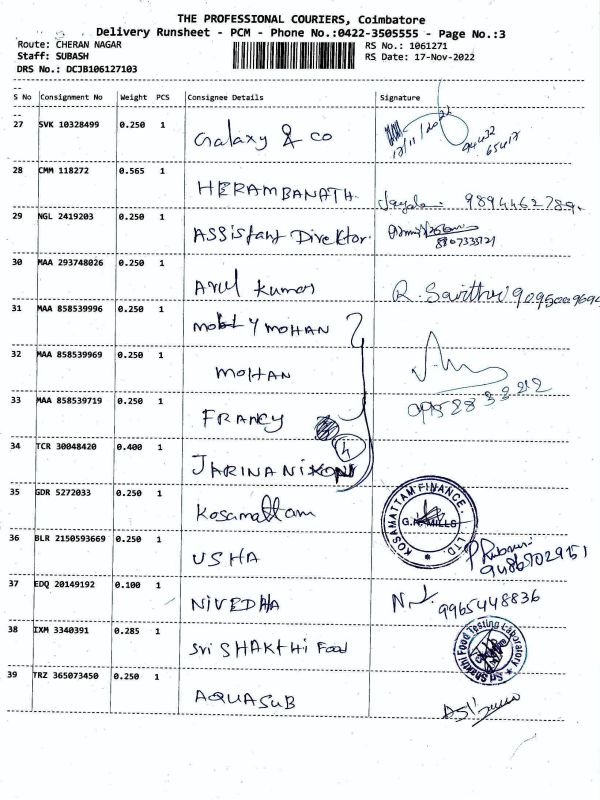 THE PROFESSIONAL COURIERS, Coimbatore
Delivery Runsheet - PCM - Phone No.:0422-3505555 - Page No.:3
Route: CHERAN NAGAR RS No.: 1061271
Staff: SUBASH RS Date: 17-Nov-2022
DRS No.: DCJB106127103
S No Consignment No Weight PCS Consignee Details Signature
27 SVK 10328499 0.250 1 Galaxy & co 17/11/2022 94432 65417
28 CMM 118272 0.565 1 HERAMBANATH 9894462789
29 NGL 2419203 0.250 1 Assistant Direktor 8807335121
30 MAA 293748026 0.250 1 Arul Kumar R. Savithri
31 MAA 858539996 0.250 1 MOHAN
32 MAA 858539969 0.250 1 MOHAN
33 MAA 858539719 0.250 1 FRANCY
34 TCR 30048420 0.400 1 4
35 GDR 5272033 0.250 1 Kosamattam KOSAMATTAM FINANCE. LTD. G.N. MILLS
36 BLR 2150593669 0.250 1 USHA
37 EDQ 20149192 0.100 1 NIVEDHA 9965448836
38 IXM 3340391 0.285 1 Sri SHAKTHI Food Sri Shakthi Food Testing Laboratory
39 TRZ 365073450 0.250 1 AQUASUB